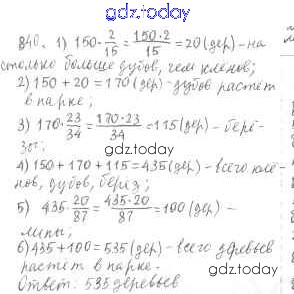 gdz.today
840. 1) 150·2/15 = 150·2/15 = 20 (дер) - на
столько больше дубов, чем клёнов;
2) 150 + 20 = 170 (дер) - дубов растёт
в парке;
3) 170·23/34 = 170·23/34 = 115 (дер) - берё-
зы;
gdz.today
4) 150 + 170 + 115 = 435 (дер) - всего клё-
нов, дубов, берёз;
5) 435·20/87 = 435·20/87 = 100 (дер) -
липы;
6) 435 + 100 = 535 (дер) - всего деревьев
растёт в парке.
Ответ: 535 деревьев
gdz.today